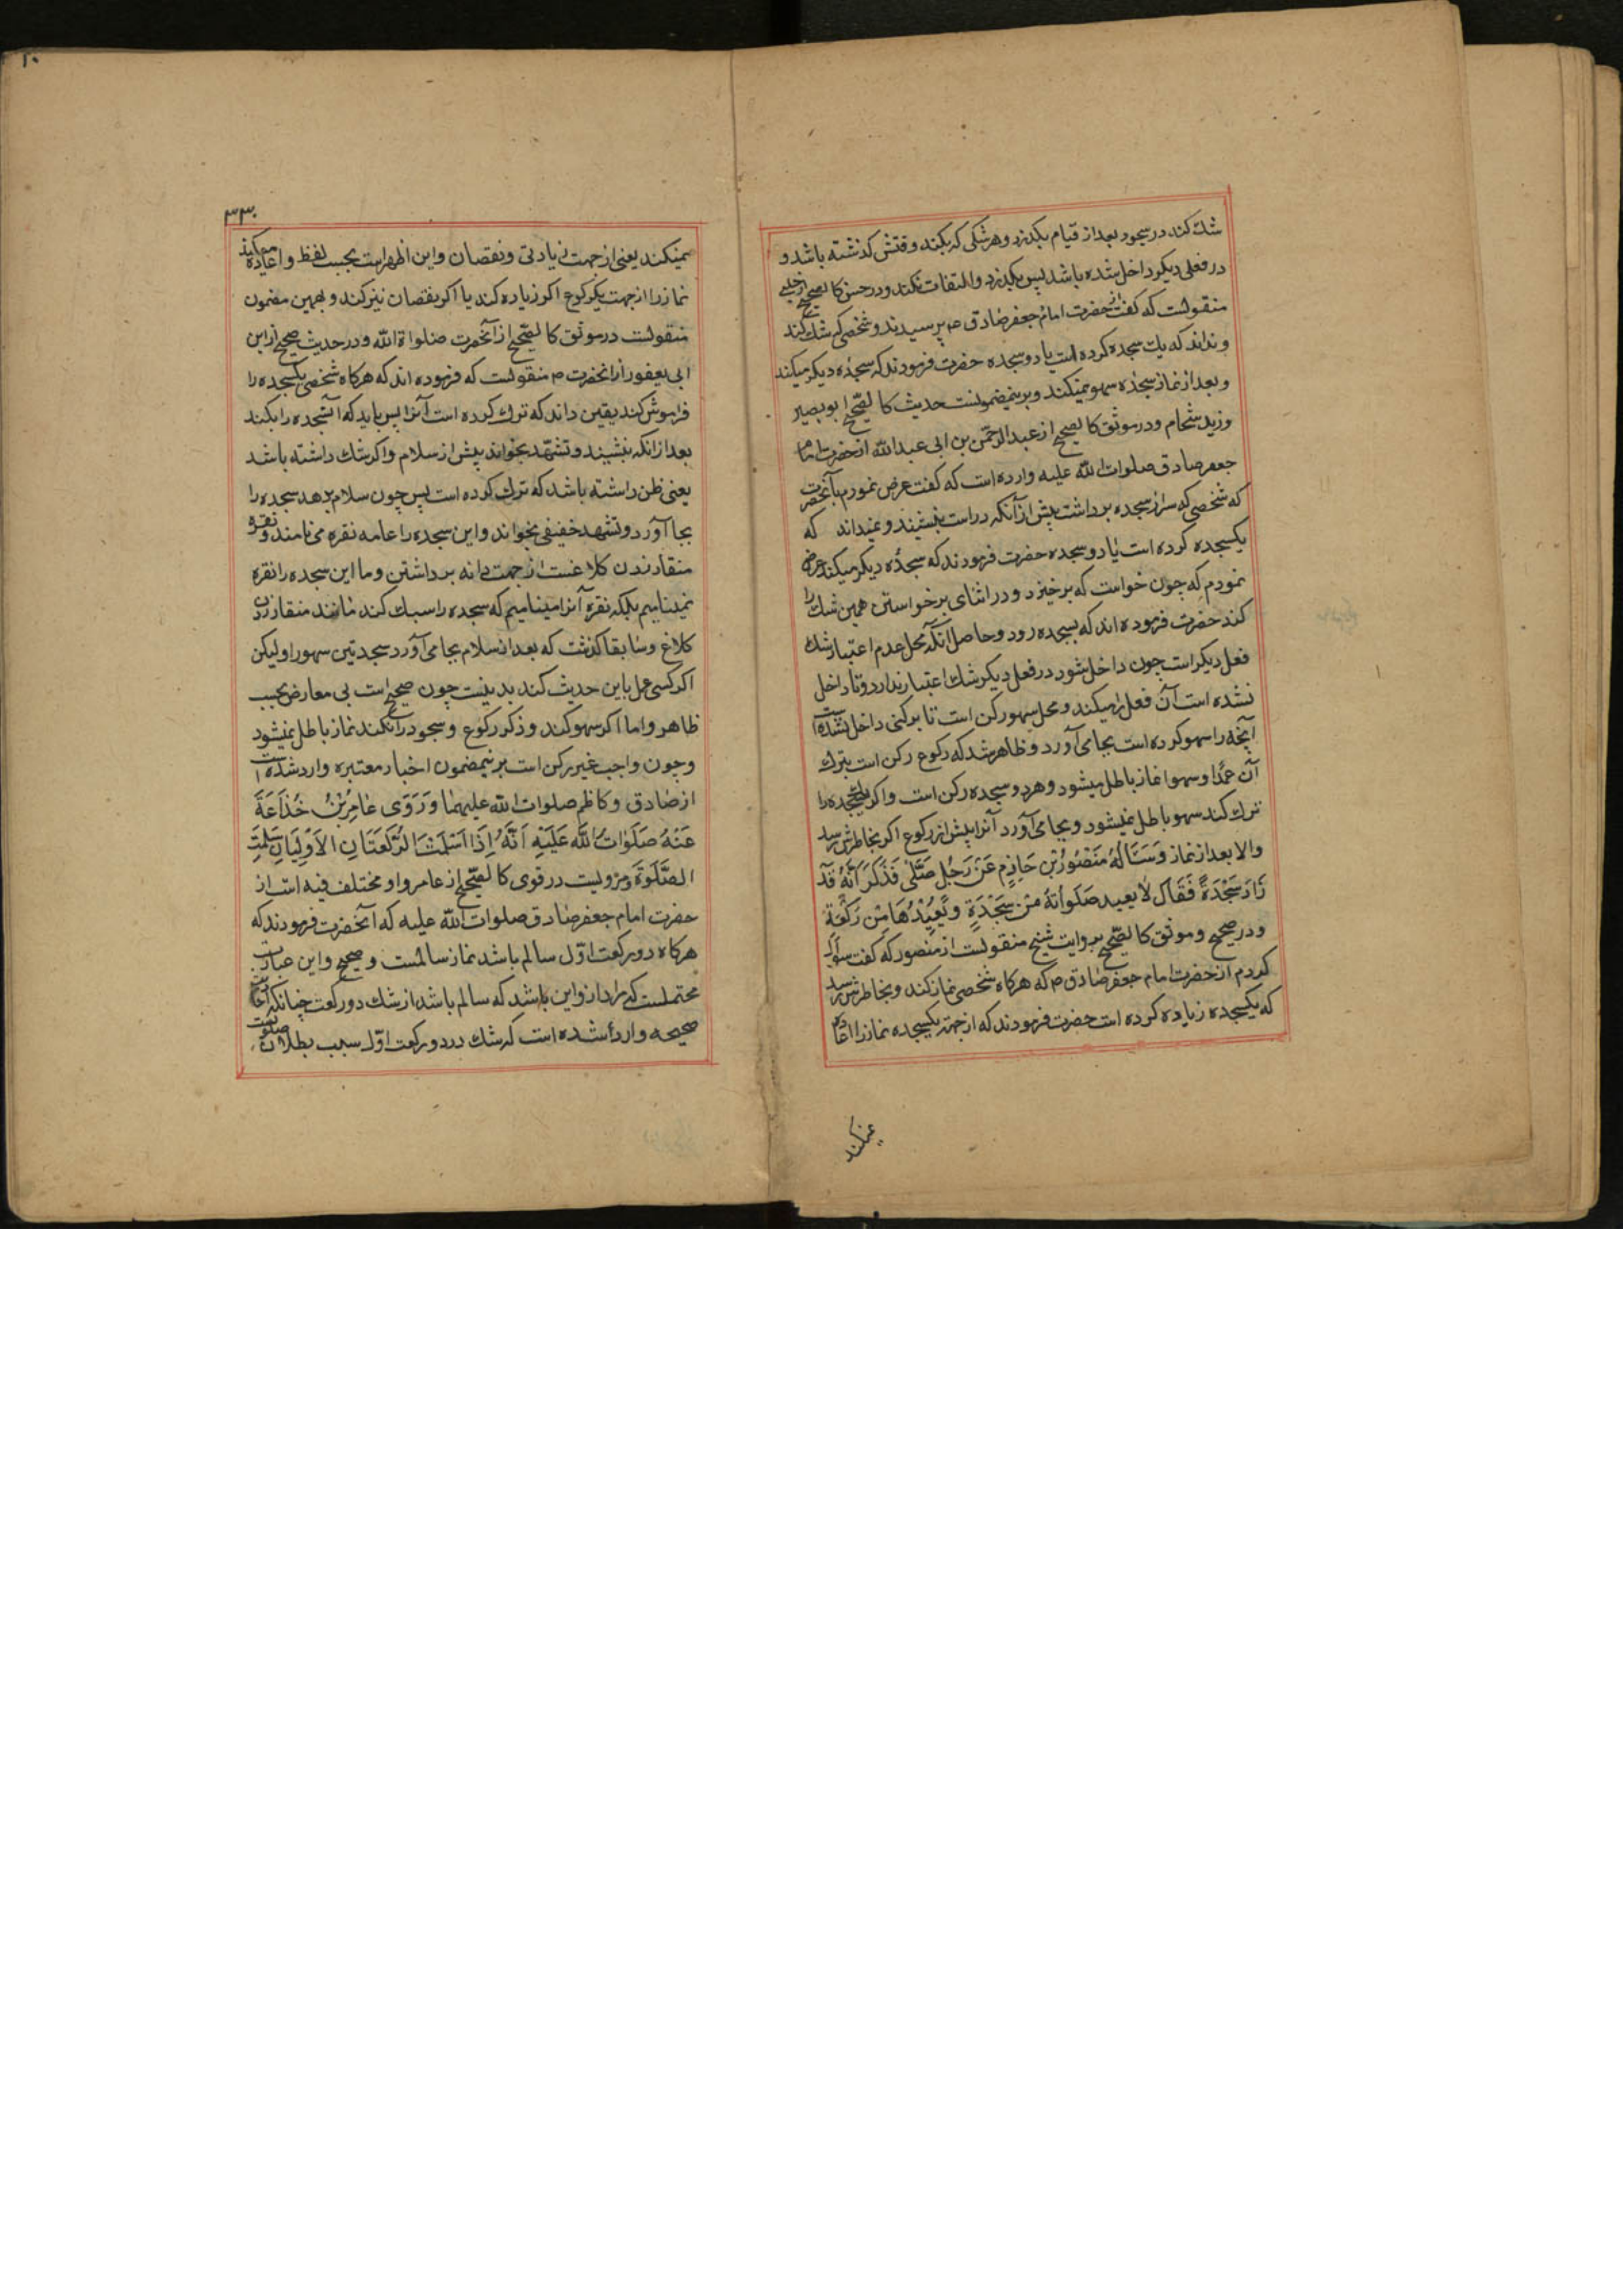 شك كند در سجود بعد از قيام بگذرد و هر شكى كه بكند وقتش گذشته باشد و
در فعلى ديكر داخل شده باشد پس بگذرد و التفات نكند و در حسن كالصحيح از حلبى
منقولست كه گفت از حضرت امام جعفر صادق ص پرسيدند و شخصى كه شك كند
و نداند كه يك سجده كرده است يا دو سجده حضرت فرمودند كه سجدۀ ديكر ميكند
و بعد از نماز سجدۀ سهو نميكند و برين مضمونست حديث كالصحيح ابو بصير
و زيد شحام و در موثق كالصحيح از عبد الرحمن بن ابى عبد الله از حضرت امام
جعفر صادق صلوات الله عليه وارده است كه گفت عرض نمودم بآنحضرت
كه شخصى كه سر از سجده برداشت پيش از آنكه در است بنشيند و نميداند كه
يكسجده كرده است يا دو سجده حضرت فرمودند كه سجدۀ ديكر ميكند عرض
نمودم كه چون خواست كه برخيزد و در اثناى برخواستن همين شك را
كند حضرت فرموده اند كه بسجده رود و حاصل آنكه محل عدم اعتبار شك
فعل ديكر است چون داخل شود در فعل ديكر شك اعتبار ندارد و تا داخل
نشده است آن فعل را ميكند و محل سهو ركن است تا بركنى داخل نشده است
آنچه را سهو كرده است بجا مى آورد و ظاهر شد كه ركوع ركن است بترك
آن عمدا و سهوا نماز باطل ميشود و هر دو سجده ركن است و اكر يكسجده را
ترك كند سهو باطل نميشود و بجا مى آورد آنرا پيش از ركوع اكر بخاطرش رسد
و الا بعد از نماز وَسَئَالَهُ مَنْصُورُ بْنِ حَازِمٍ عَنْ رَجُلٍ صَلَّىٰ فَذَكَرَ أَنَّهُ قَدْ
زَادَ سَجْدَةً فَقَالَ لَا يعيد صَلَواتَهُ مِنْ سَجْدَةٍ وَيُعِيْدُهَا مِنْ رَكْعَةٍ
و در صحيح و موثق كالصحيح بروايت شيخ منقولست از منصور كه گفت سؤال
كردم از حضرت امام جعفر صادق ص كه هركاه شخصى نماز كند و بخاطرش رسد
كه يكسجده زياده كرده است حضرت فرمودند كه از جهة يكسجده نماز را اعاده
نميكند
۳۳۰
نميكند يعنى از جهت زيادتى و نقصان و اين اظهر است بحسب لفظ و اعاده ميكند
نماز را از جهت يكركوع اكر زياده كند يا اكر نقصان نيز كند و بهمين مضمون
منقولست در موثق كالصحيح از آنحضرت صلواة الله و در حديث صحيح از ابن
ابى يعفور از آنحضرت ص منقولست كه فرموده اند كه هركاه شخصى يكسجده را
فراموش كند يقين داند كه ترك كرده است آنرا پس بايد كه آنسجده را بكند
بعد از آنكه بنشيند و تشهد بخواند پيش از سلام و اكر شك داشته باشد
يعنى ظن داشته باشد كه ترك كرده است پس چون سلام بدهد سجده را
بجا آورد و تشهد خفيفى بخواند و اين سجده را عامه نقره مى نامند و نقره
منقار زدن كلاغست از جهت دانه برداشتن و ما اين سجده را نقره
نميناميم بلكه نقره آنرا ميناميم كه سجده را سبك كند مانند منقار زدن
كلاغ و سابقا كذشت كه بعد از سلام بجا مى آورد سجدتين سهو را و ليكن
اكر كسى عمل باين حديث كند بد نيست چون صحيح است بى معارض بحسب
ظاهر و اما اكر سهو كند و ذكر ركوع و سجود را نكند نماز باطل نميشود
و چون واجب غير ركن است برين مضمون اخبار معتبره وارد شده است
از صادق و كاظم صلوات الله عليهما وَرَوَى عَامِرُ بْنُ خُذَاعَةَ
عَنْهُ صَلَوَاتُ اللهِ عَلَيْهِ أَنَّهُ إِذَا اَسْلَمَتْ الرَّكْعَتَانِ الأَوْلِيَانِ سَلِمَتِ
الصَّلَوةَ و مرويست در قوى كالصحيح از عامر و او مختلف فيه است از
حضرت امام جعفر صادق صلوات الله عليه كه آنحضرت فرمودند كه
هركاه دو ركعت اوّل سالم باشد نماز سالمست و صحيح و اين عبارت
محتملست كه مراد از و اين باشد كه سالم باشد از شك دو ركعت چنانكه
صحيحه وارد شده است كه شك در دو ركعت اوّل سبب بطلان صلوتست